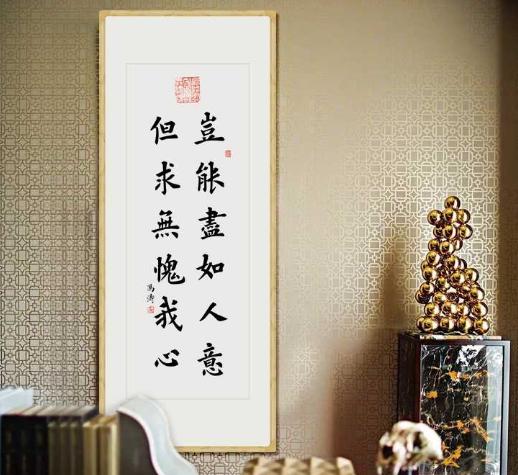 豈能盡如人意
但求無愧我心
馮濤